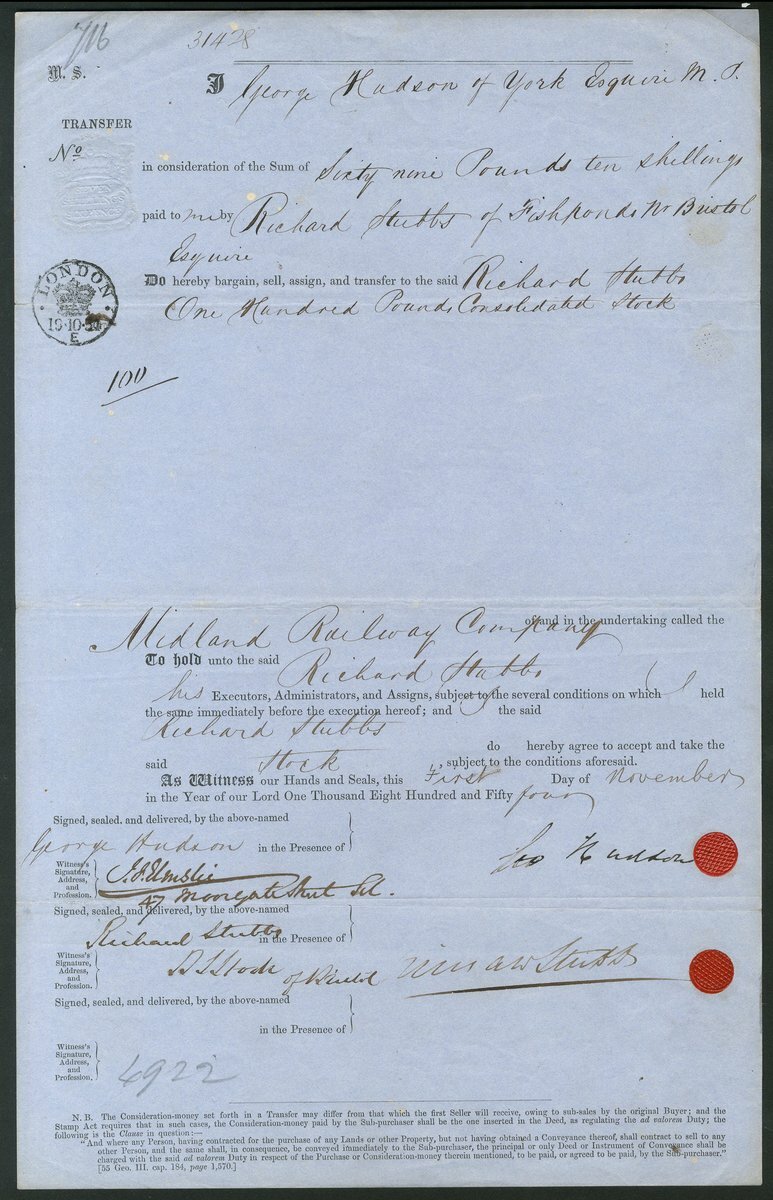 716
31428
M. S.
I George Hudson of York Esquire M. P.
TRANSFER
No
in consideration of the Sum of Sixty nine Pounds ten shillings
paid to me by Richard Stubbs of Fishponds Nr Bristol
Esquire
LONDON
E
Do hereby bargain, sell, assign, and transfer to the said Richard Stubbs
One Hundred Pounds Consolidated Stock
100
of and in the undertaking called the
Midland Railway Company
To hold unto the said Richard Stubbs
his Executors, Administrators, and Assigns, subject to the several conditions on which I held
the same immediately before the execution hereof; and I the said
Richard Stubbs
do hereby agree to accept and take the
said Stock, subject to the conditions aforesaid.
As Witness our Hands and Seals, this First Day of November
in the Year of our Lord One Thousand Eight Hundred and Fifty four
Signed, sealed, and delivered, by the above-named
George Hudson in the Presence of
Geo Hudson
Witness's
Signature,
Address,
and
Profession.
J. F. Elmslie
47 Moorgate Street Sol.
Signed, sealed, and delivered, by the above-named
Richard Stubbs in the Presence of
Witness's
Signature,
Address,
and
Profession.
Stubbs
Signed, sealed, and delivered, by the above-named
in the Presence of
Witness's
Signature,
Address,
and
Profession.
4922
N. B. The Consideration-money set forth in a Transfer may differ from that which the first Seller will receive, owing to sub-sales by the original Buyer; and the
Stamp Act requires that in such cases, the Consideration-money paid by the Sub-purchaser shall be the one inserted in the Deed, as regulating the ad valorem Duty; the
following is the Clause in question:—
"And where any Person, having contracted for the purchase of any Lands or other Property, but not having obtained a Conveyance thereof, shall contract to sell to any
other Person, and the same shall, in consequence, be conveyed immediately to the Sub-purchaser, the principal or only Deed or Instrument of Conveyance shall be
charged with the said ad valorem Duty in respect of the Purchase or Consideration-money therein mentioned, to be paid, or agreed to be paid, by the Sub-purchaser."
[55 Geo. III. cap. 184, page 1,570.]